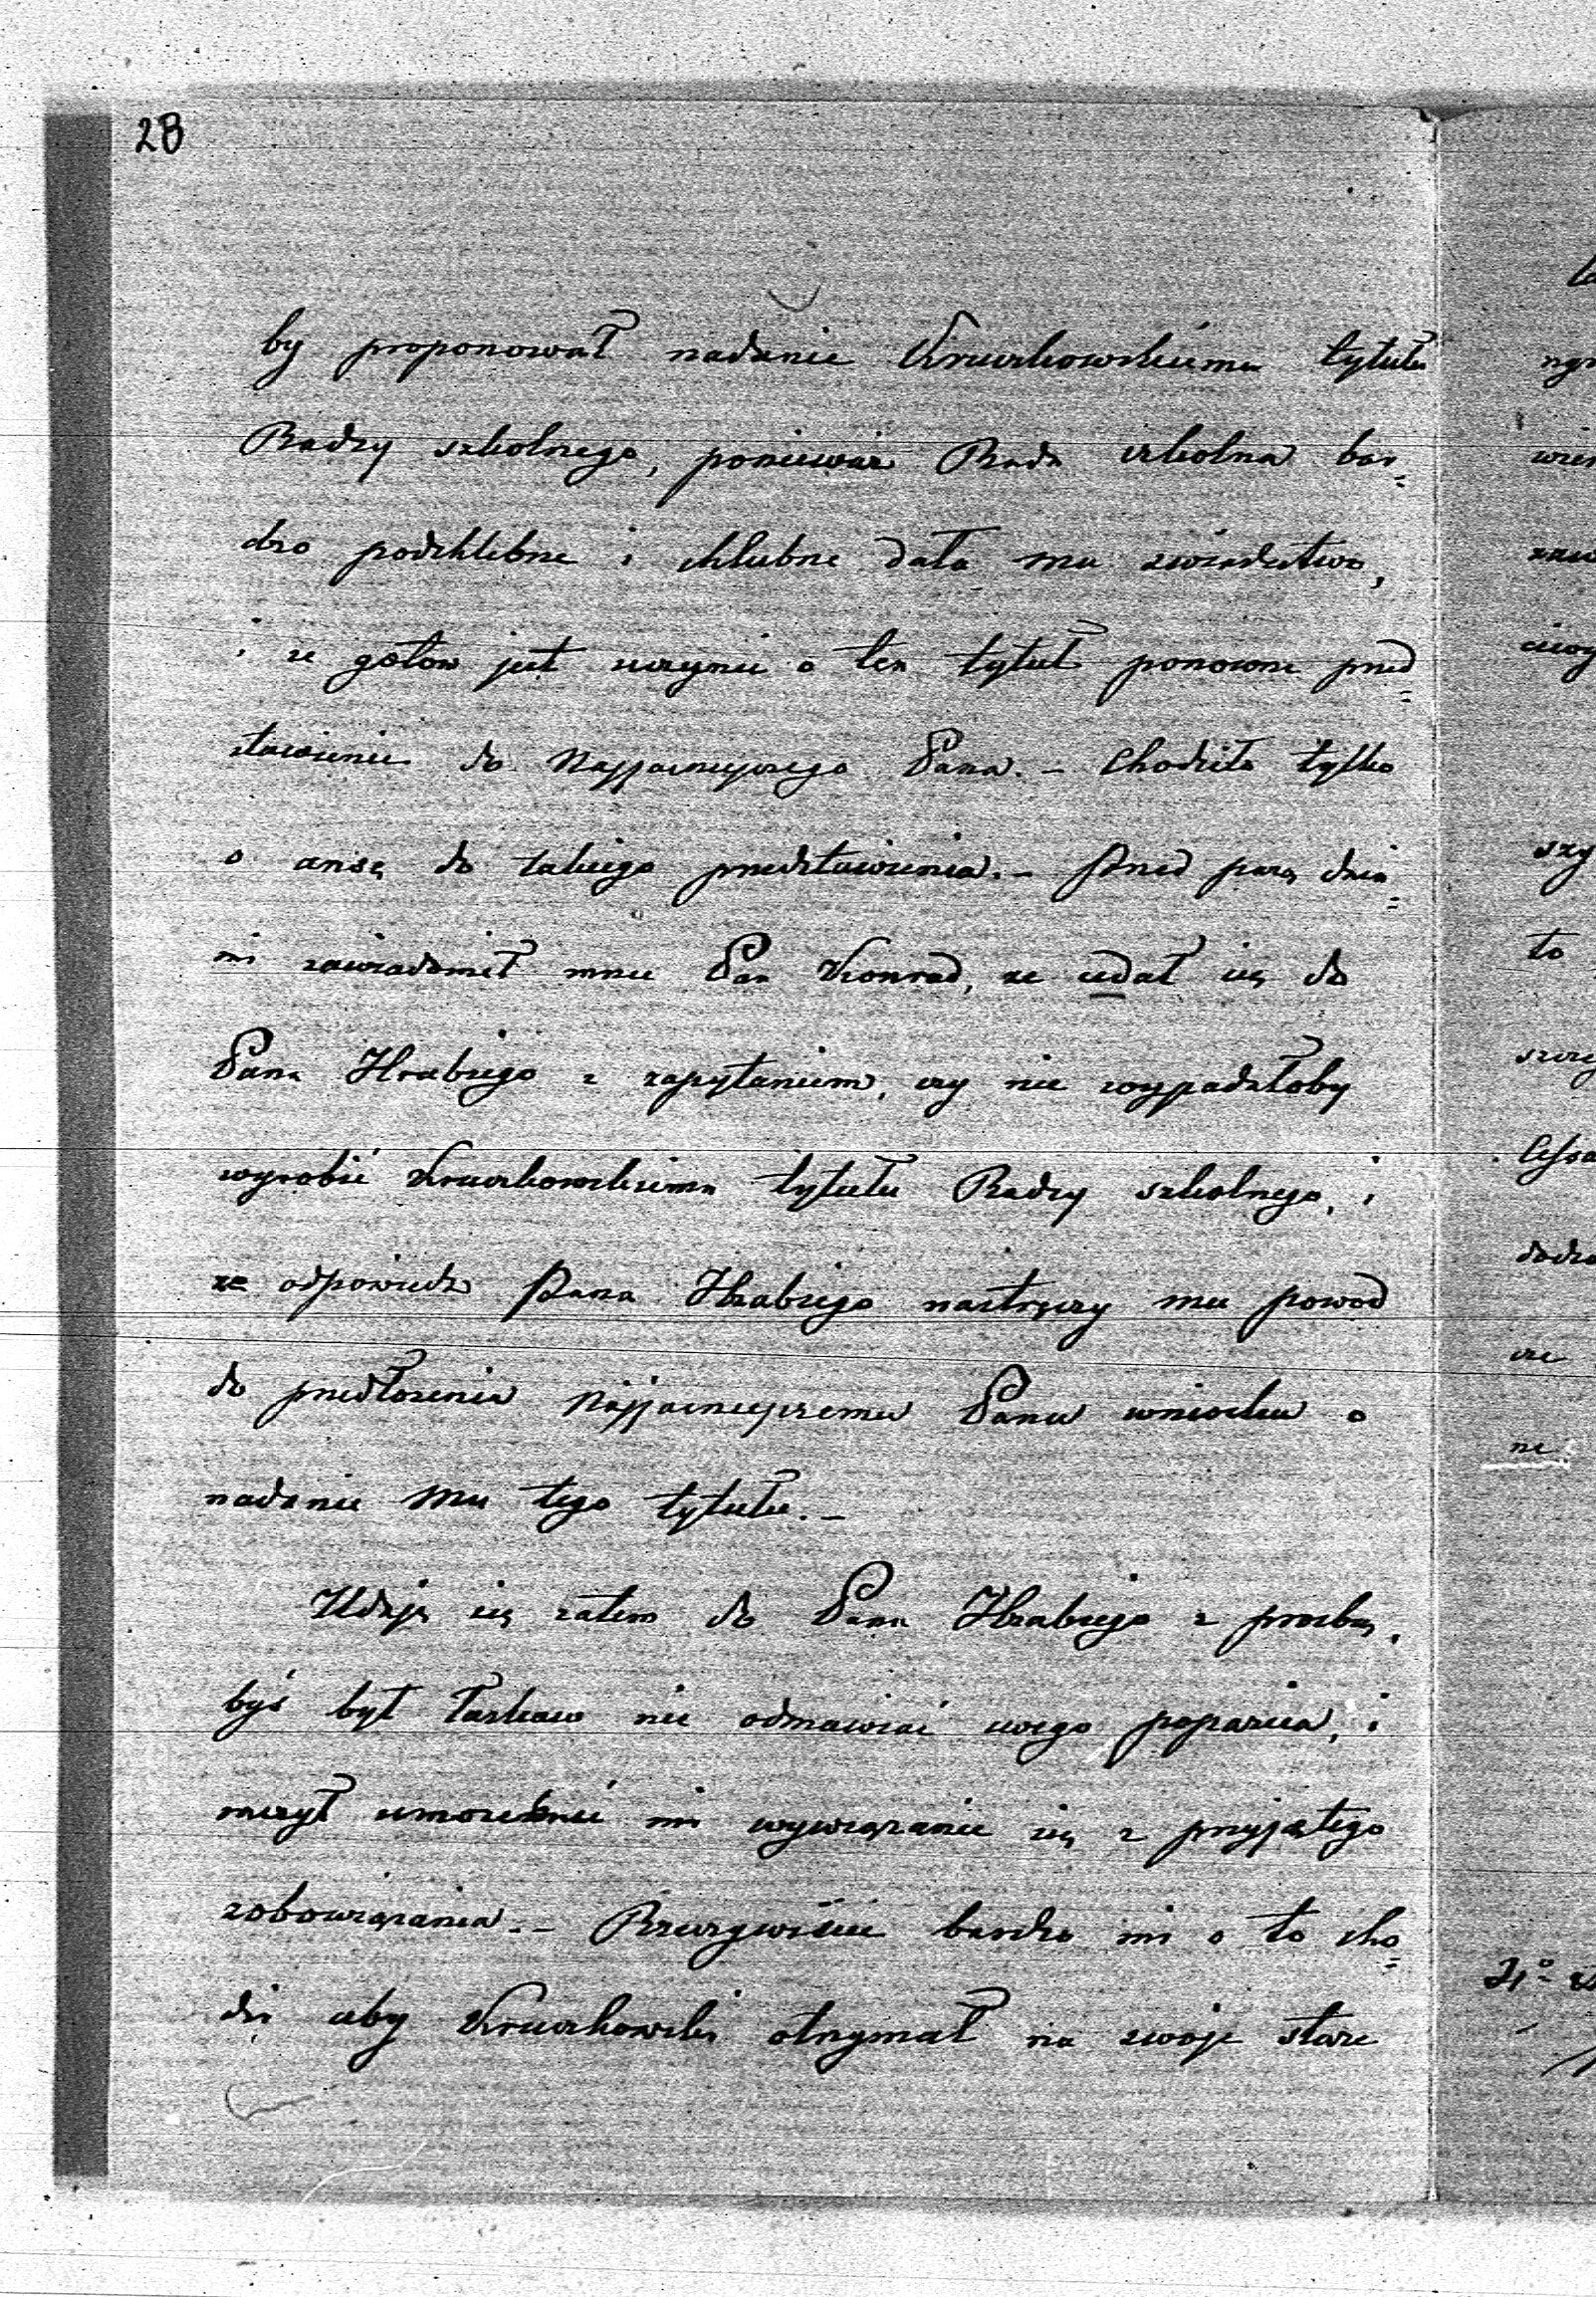 28
by proponował nadanie Kruczkowskiemu tytułu
Radzy szkolnego, ponieważ Rada szkolna bar=
dzo podchlebne i chlubne dała mu świadectwo,
i że gotow jest uczynić o ten tytuł ponowne przed=
stawienie do Najjaśniejszego Pana. – Chodziło tylko
o ansę do takiego przedstawienia. – Przed parą dnia=
mi zawiadomił mnie Pan Konrad, że udał się do
Pana Hrabiego z zapytaniem, czy nie wypadałoby
wyrobić Kruczkowskiemu tytułu Radzy szkolnego, i
że odpowiedź Pana Hrabiego nastręczy mu powod
do przedłożenia Najjaśniejszemu Panu wniosku o
nadanie mu tego tytułu. –
Udaję się zatem do Pana Hrabiego z prośbą,
byś był łaskaw nie odmawiać swego poparcia, i
raczył umożebnić mi wywiązanie się z przyjętego
zobowiązania. – Rzeczywiście bardzo mi o to cho=
dzi aby Kruczkowski otrzymał na swoje stare